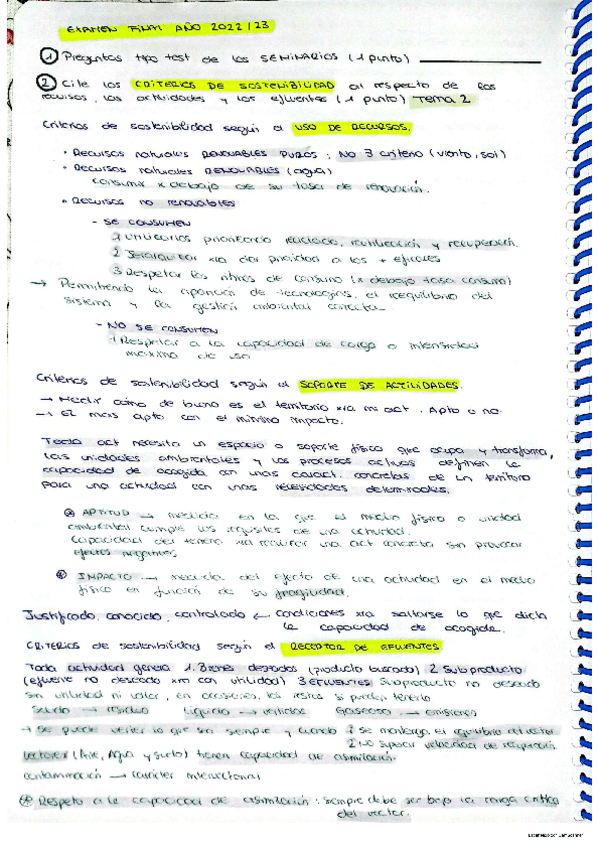 EXAMEN FINAL AÑO 2022/23
① Preguntas tipo test de los SEMINARIOS (1 punto)
② Cite los CRITERIOS DE SOSTENIBILIDAD al respecto de los
recursos, las actividades y los efluentes (1 punto) Tema 2
Criterios de sostenibilidad según el USO DE RECURSOS.
· Recursos naturales RENOVABLES PUROS: No 3 criterio (viento, sol)
· Recursos naturales RENOVABLES (agua)
consumir x debajo de su tasa de renovación.
· Recursos no renovables
- SE CONSUMEN
1 Utilizarlos prioritario reciclado, reutilización y recuperación.
2 Jerarquizar xra dar prioridad a los + eficaces
3 Respetar los ritmos de consumo (x debajo tasa consumo)
→ Permitiendo la aparición de tecnologías, el reequilibrio del
sistema y la gestión ambiental correcta.
- NO SE CONSUMEN
1 Respetar a la capacidad de carga o intensidad
máxima de uso
Criterios de sostenibilidad según el SOPORTE DE ACTIVIDADES.
→ Medir cómo de bueno es el territorio xra mi act. Apto o no.
→ El más apto con el mínimo impacto.
Toda act necesita un espacio o soporte físico que ocupa y transforma,
las unidades ambientales y los procesos activos definen la
capacidad de acogida con unas caract. concretas de un territorio
para una actividad con unas necesidades determinadas.
APTITUD → medida en la que el medio físico o unidad
ambiental cumple los requisitos de una actividad.
Capacidad del terreno xra realizar una act concreta sin provocar
efectos negativos
IMPACTO → medida del efecto de una actividad en el medio
físico en función de su fragilidad.
Justificado, conocido, controlado ← condiciones xra saltarse lo que dicta
la capacidad de acogida.
CRITERIOS de sostenibilidad según el RECEPTOR DE EFLUENTES
Toda actividad genera 1. Bienes deseados (producto buscado) 2 Subproducto
(efluente no deseado xro con utilidad) 3 EFLUENTES Subproducto no deseado
sin utilidad ni valor, en ocasiones, los restos si pueden tenerlo
Sólido → residuo Líquido → vertidos Gaseoso → emisiones
→ Se puede verter lo que sea siempre y cuando 1 Se mantenga el equilibrio del vector
2 No superar velocidad de recuperación.
Vectores (Aire, Agua y suelo) tienen capacidad de asimilación.
contaminación → carácter
Respeto a la capacidad de asimilación: siempre debe ser bajo la carga crítica
del vector.